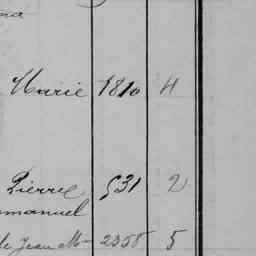 Marie 1810 4
Pierre 531 2
mmanuel
de Jean M 2358 5